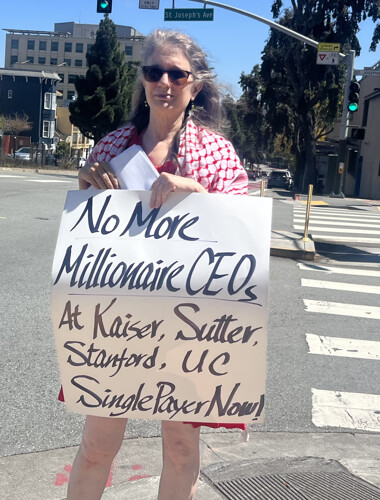 St Joseph's Av
No More
Millionaire CEOs
At Kaiser, Sutter,
Stanford, UC
Single Payer Now!